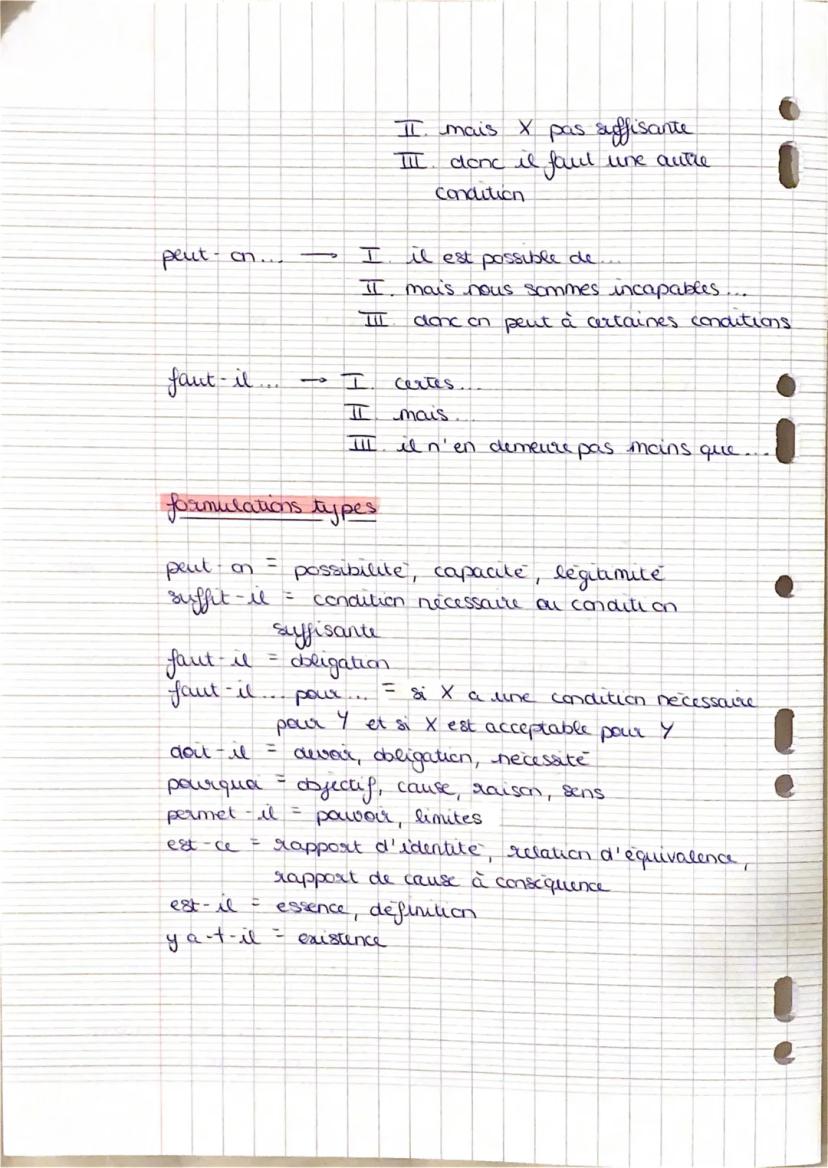 II. mais X pas suffisante
III. donc il faut une autre
condition
peut-on... → I. il est possible de...
II. mais nous sommes incapables...
III. donc on peut à certaines conditions
faut-il... → I. certes...
II. mais...
III. il n'en demeure pas moins que...
formulations types
peut-on = possibilité, capacité, légitimité
suffit-il = condition nécessaire ou condition
suffisante
faut-il = obligation
faut-il... pour... = si X a une condition nécessaire
pour Y et si X est acceptable pour Y
doit-il = devoir, obligation, nécessité
pourquoi = objectif, cause, raison, sens
permet-il = pouvoir, limites
est-ce = rapport d'identité, relation d'équivalence,
rapport de cause à conséquence
est-il = essence, définition
y a-t-il = existence